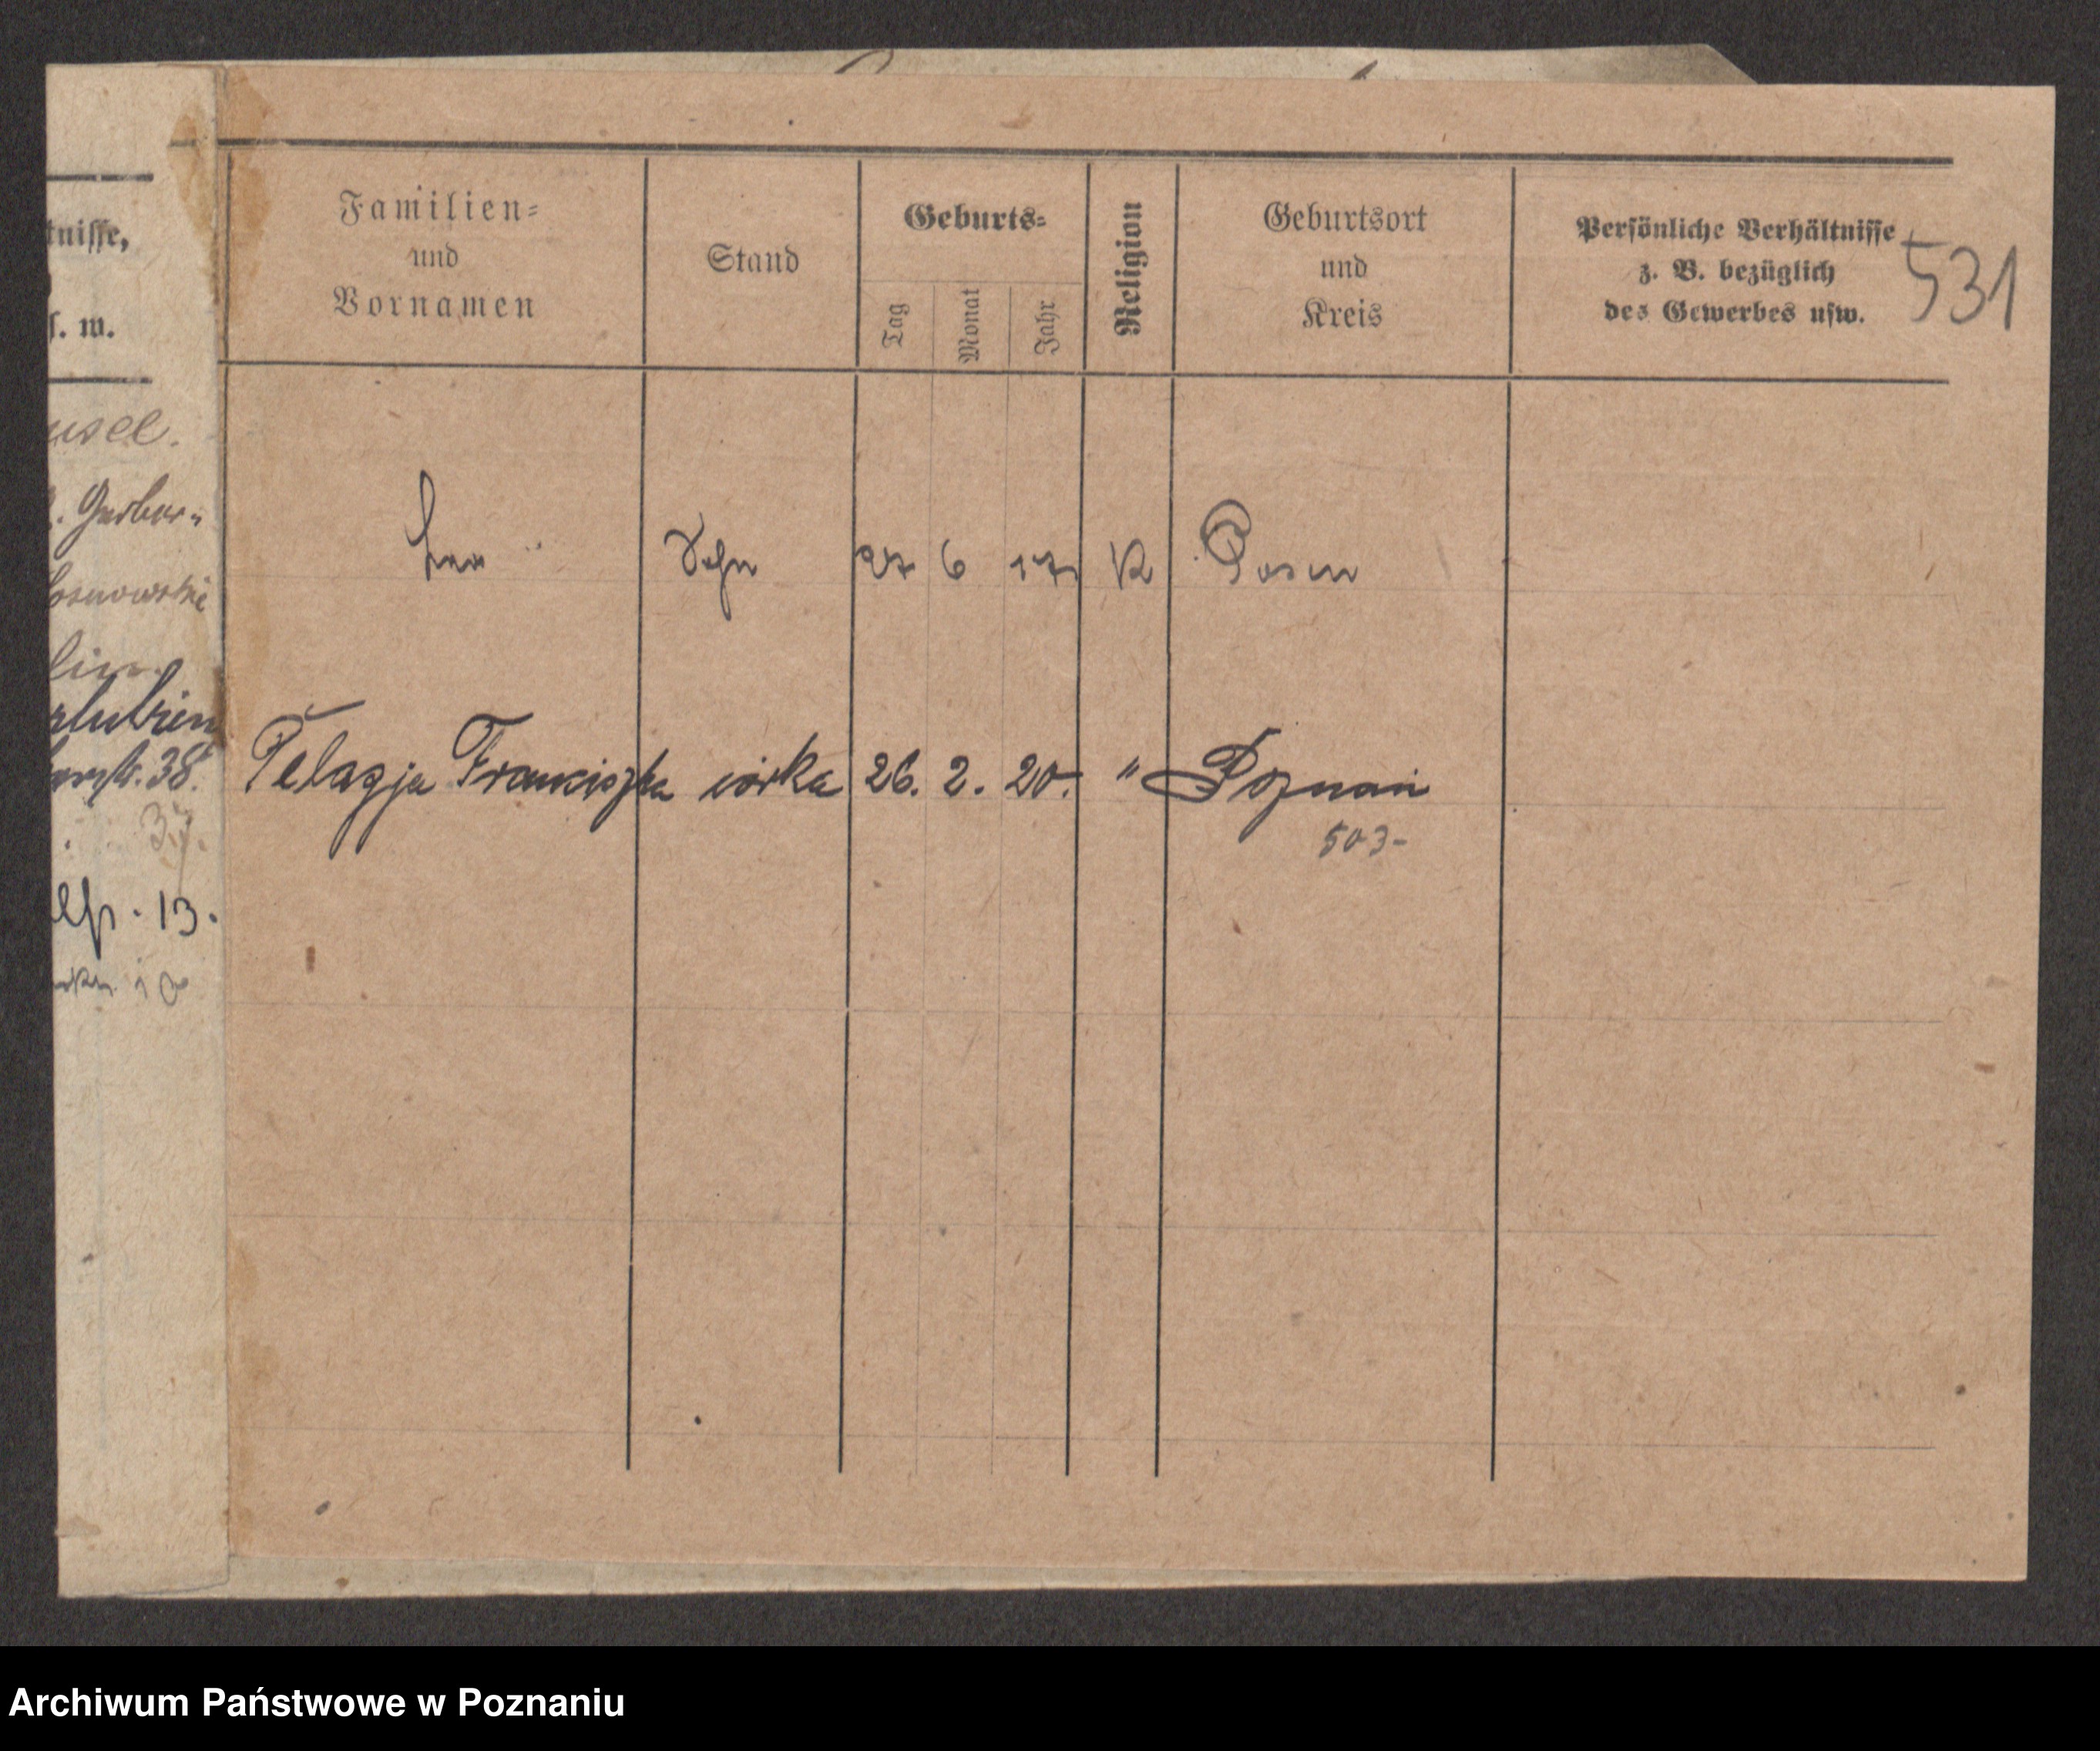 tnisse,
s. w.
usel.
Gerber-
osnowski
lin
str. 38.
37.
13.
10
Familien=
und
Vornamen
Stand
Geburts=
Tag
Monat
Jahr
Religion
Geburtsort
und
Kreis
Persönliche Verhältnisse
z. B. bezüglich
des Gewerbes usw.
531
Leo Sohn 27 6 17 K Posen
Pelagja Franciszka córka 26. 2. 20. " Poznań
503-
Archiwum Państwowe w Poznaniu